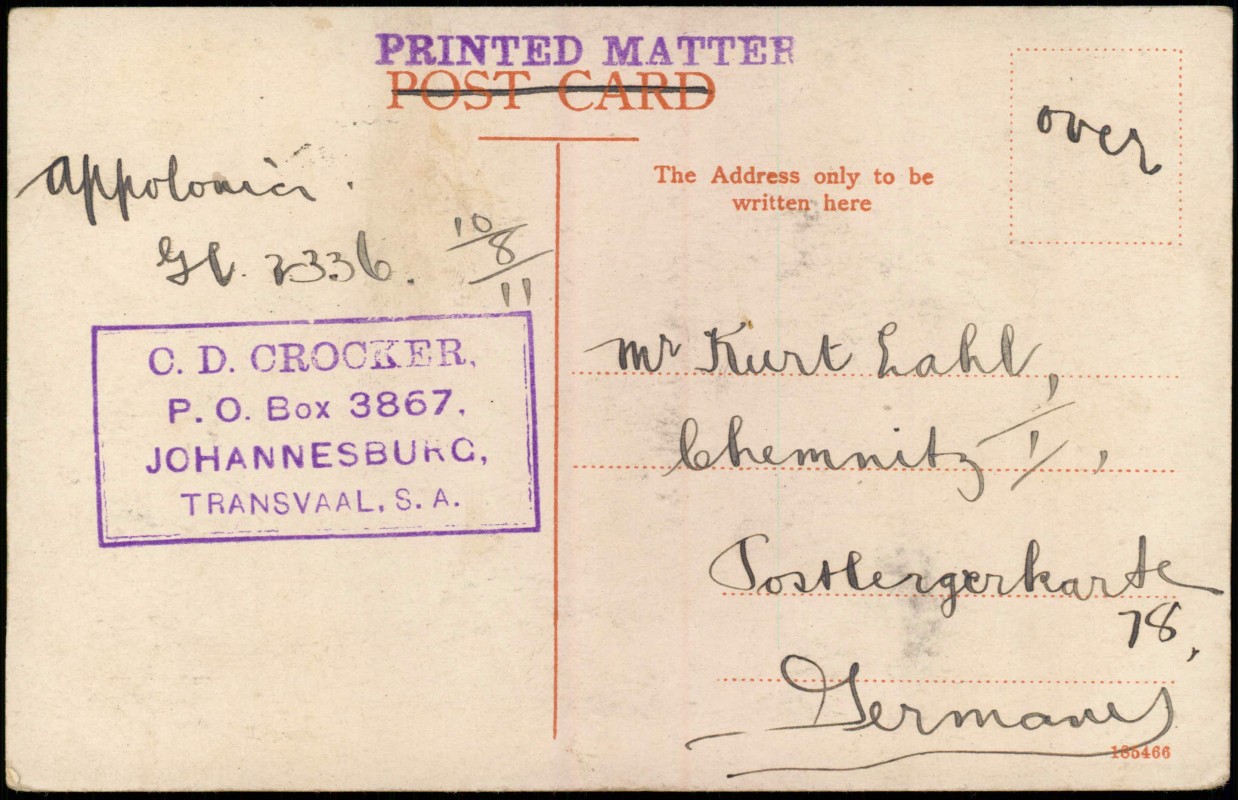 PRINTED MATTER
POST CARD
over
The Address only to be
written here
Appolonia.
Gl. 2336. 10/8/11
C. D. CROCKER,
P. O. Box 3867,
JOHANNESBURG,
TRANSVAAL, S. A.
Mr Kurt Lahl,
Chemnitz 1/1,
Postlergerkarte
78,
Germany
185466